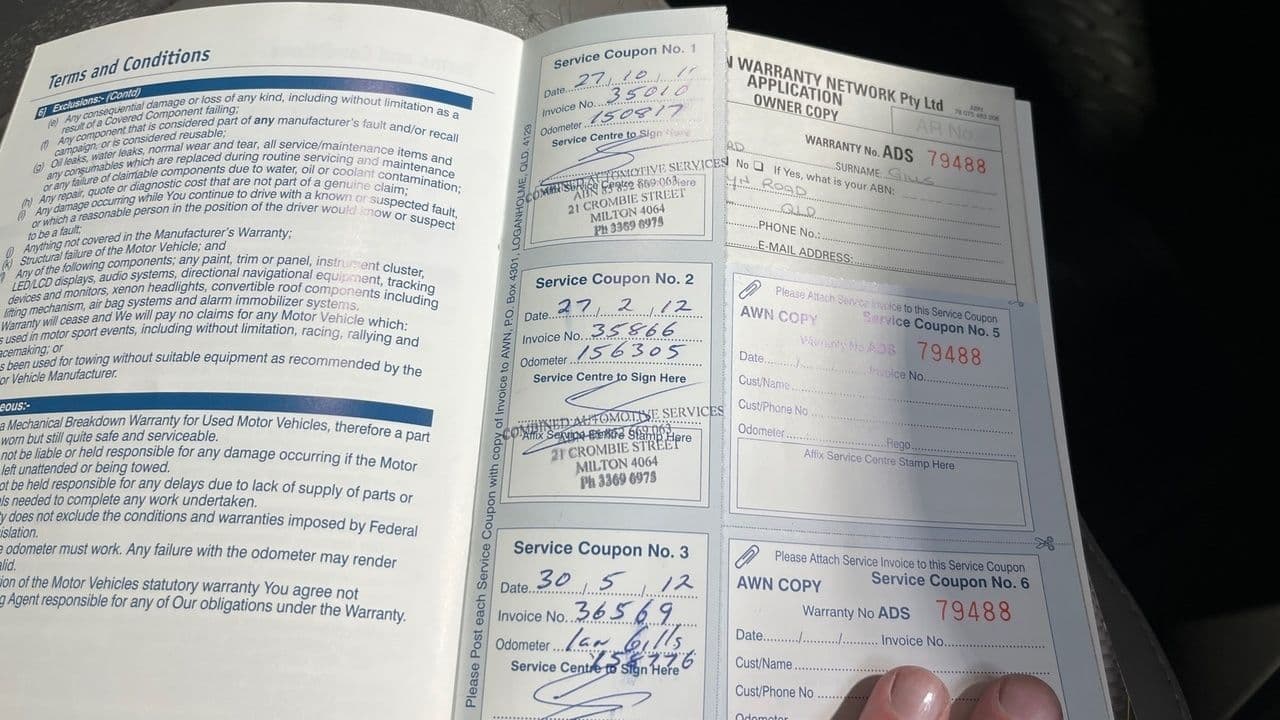 Terms and Conditions
6) Exclusions:- (Contd)
(e) Any consequential damage or loss of any kind, including without limitation as a
result of a Covered Component failing;
(f) Any component that is considered part of any manufacturer's fault and/or recall
campaign, or is considered reusable;
(g) Oil leaks, water leaks, normal wear and tear, all service/maintenance items and
any consumables which are replaced during routine servicing and maintenance
or any failure of claimable components due to water, oil or coolant contamination;
(h) Any repair, quote or diagnostic cost that are not part of a genuine claim;
(i) Any damage occurring while You continue to drive with a known or suspected fault,
or which a reasonable person in the position of the driver would know or suspect
to be a fault;
(j) Anything not covered in the Manufacturer's Warranty;
(k) Structural failure of the Motor Vehicle; and
Any of the following components; any paint, trim or panel, instrument cluster,
LED/LCD displays, audio systems, directional navigational equipment, tracking
devices and monitors, xenon headlights, convertible roof components including
lifting mechanism, air bag systems and alarm immobilizer systems.
Warranty will cease and We will pay no claims for any Motor Vehicle which:
used in motor sport events, including without limitation, racing, rallying and
pacemaking; or
been used for towing without suitable equipment as recommended by the
or Vehicle Manufacturer.
eous:-
a Mechanical Breakdown Warranty for Used Motor Vehicles, therefore a part
worn but still quite safe and serviceable.
not be liable or held responsible for any damage occurring if the Motor
left unattended or being towed.
ot be held responsible for any delays due to lack of supply of parts or
ls needed to complete any work undertaken.
y does not exclude the conditions and warranties imposed by Federal
islation.
e odometer must work. Any failure with the odometer may render
alid.
ion of the Motor Vehicles statutory warranty You agree not
g Agent responsible for any of Our obligations under the Warranty.
Please Post each Service Coupon with copy of Invoice to AWN, P.O. Box 4301, LOGANHOLME, QLD, 4129
Service Coupon No. 1
Date 27, 10, 11
Invoice No. 35010
Odometer 150817
Service Centre to Sign Here
COMBINED AUTOMOTIVE SERVICES
Affix Service Centre Stamp Here
21 CROMBIE STREET
MILTON 4064
Ph 3369 6975
Service Coupon No. 2
Date 27, 2, 12
Invoice No. 35866
Odometer 156305
Service Centre to Sign Here
COMBINED AUTOMOTIVE SERVICES
Affix Service Centre Stamp Here
21 CROMBIE STREET
MILTON 4064
Ph 3369 6975
Service Coupon No. 3
Date 30, 5, 12
Invoice No. 36569
Odometer Ian Gills
158776
Service Centre to Sign Here
N WARRANTY NETWORK Pty Ltd
APPLICATION
OWNER COPY
WARRANTY No. ADS 79488
RD SURNAME: GILLS
No If Yes, what is your ABN:
YN ROAD
QLD
PHONE No.:
E-MAIL ADDRESS:
Please Attach Service Invoice to this Service Coupon
AWN COPY Service Coupon No. 5
Warranty No ADS 79488
Date / Invoice No.
Cust/Name
Cust/Phone No
Odometer Rego
Affix Service Centre Stamp Here
Please Attach Service Invoice to this Service Coupon
AWN COPY Service Coupon No. 6
Warranty No ADS 79488
Date / / Invoice No.
Cust/Name
Cust/Phone No
Odometer